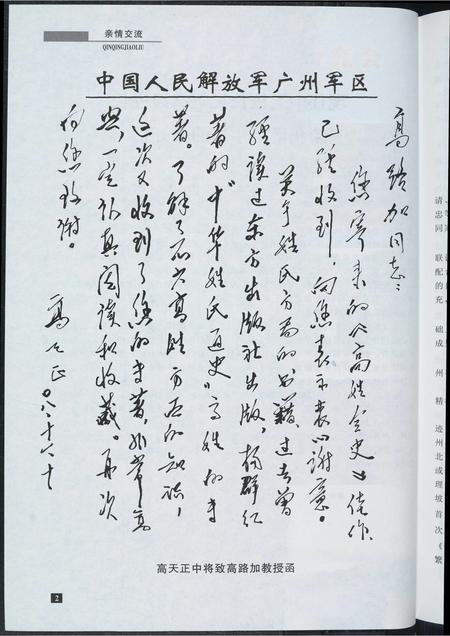 亲情交流
QINQINGJIAOLIU
中国人民解放军广州军区
高路加同志：
您寄来的《高姓全史》佳作
已经收到，向您表示衷心谢意。
关于姓氏方面的书籍，过去曾
经读过东方出版社出版，杨群红
著的“中华姓氏通史”高姓的专
著。了解了不少高姓方面的知识，
这次又收到了您的专著，非常高
兴，一定认真阅读和收藏。再次
向您致谢。
高天正
高天正中将致高路加教授函
2
请
忠
同
联
配
的
充
础
成
州
精
迹
州
北
或
理
坡
首
次
《
繁